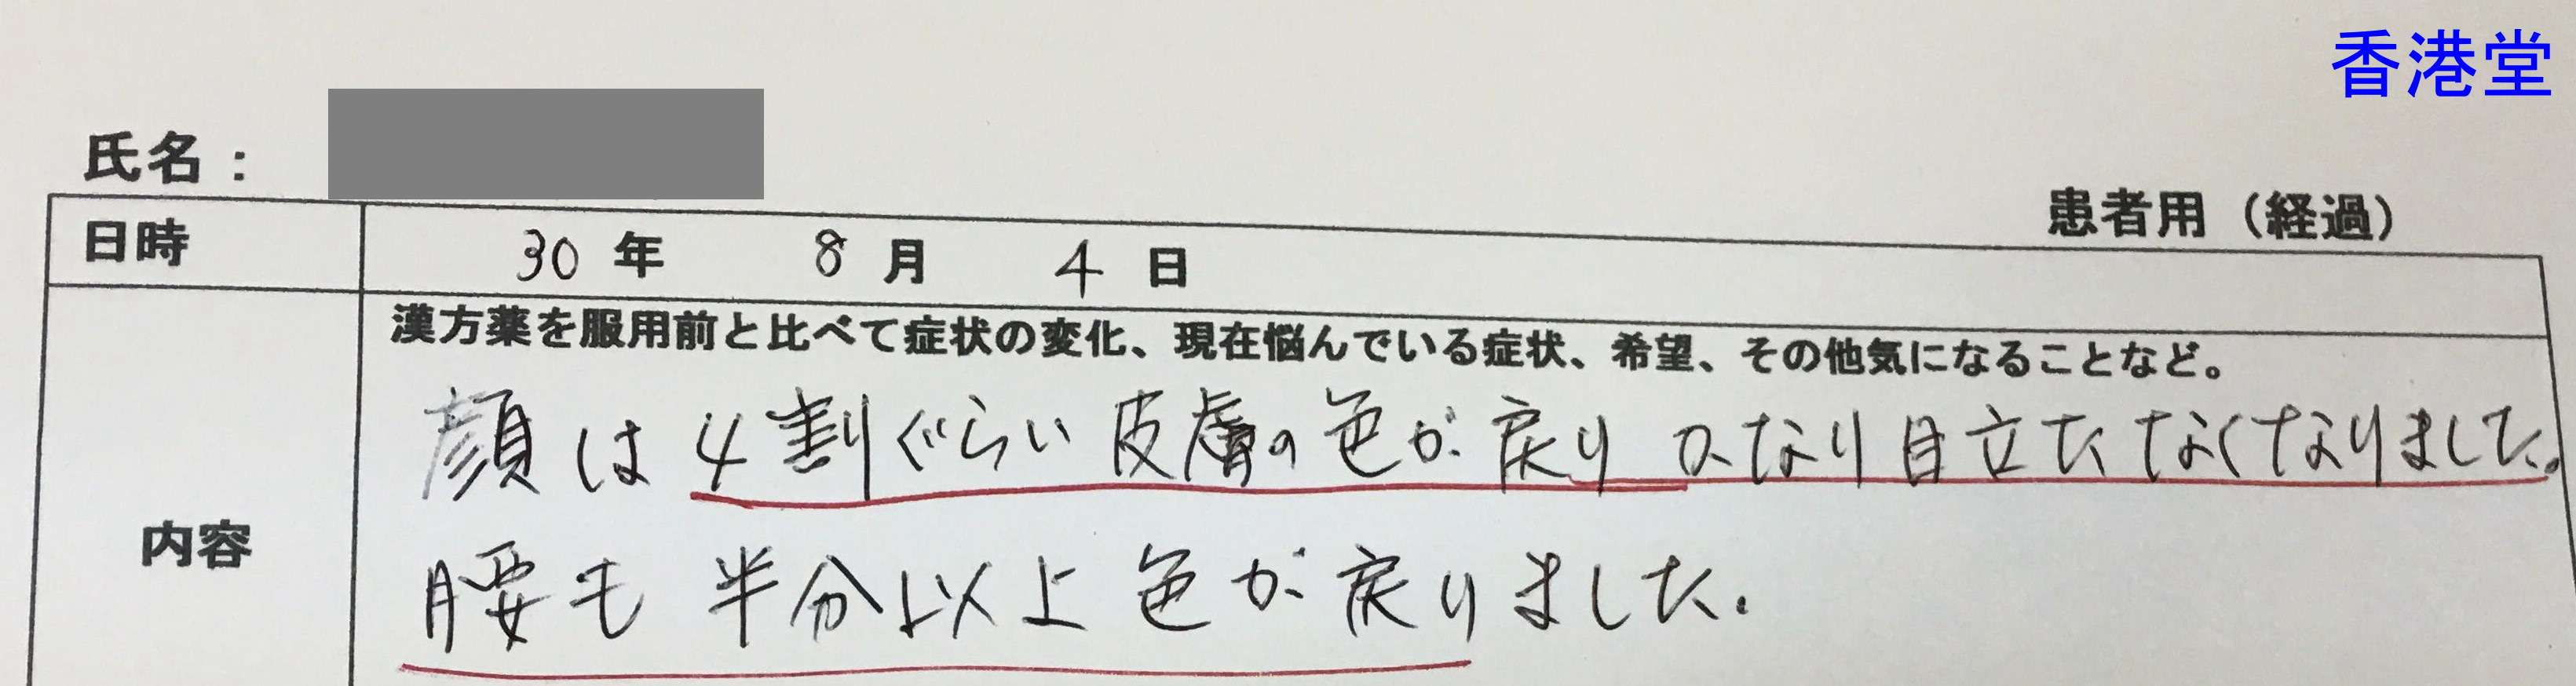 香港堂
氏名：
患者用（経過）
日時 30 年 8 月 4 日
漢方薬を服用前と比べて症状の変化、現在悩んでいる症状、希望、その他気になることなど。
内容
顔は4割ぐらい皮膚の色が戻りかなり目立たなくなりました。
腰も半分以上色が戻りました。